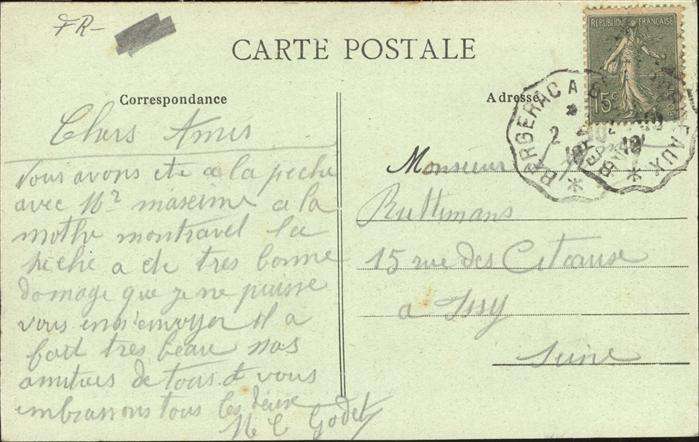 FR-
CARTE POSTALE
RÉPUBLIQUE FRANÇAISE
15c
Correspondance
Adresse
BARGERAC A BORDEAUX
Chers Amis
Vous avons ete a la peche
avec Mr maxime a la
mothe montravel la
peche a ete tres bonne
domage que je ne puisse
vous en envoyer il a
fait tres beau nos
amities de tous & vous
embrassons tous les deux
M C Godet
Monsieur
Ruttimans
15 rue des Citeaux
a Issy
Seine